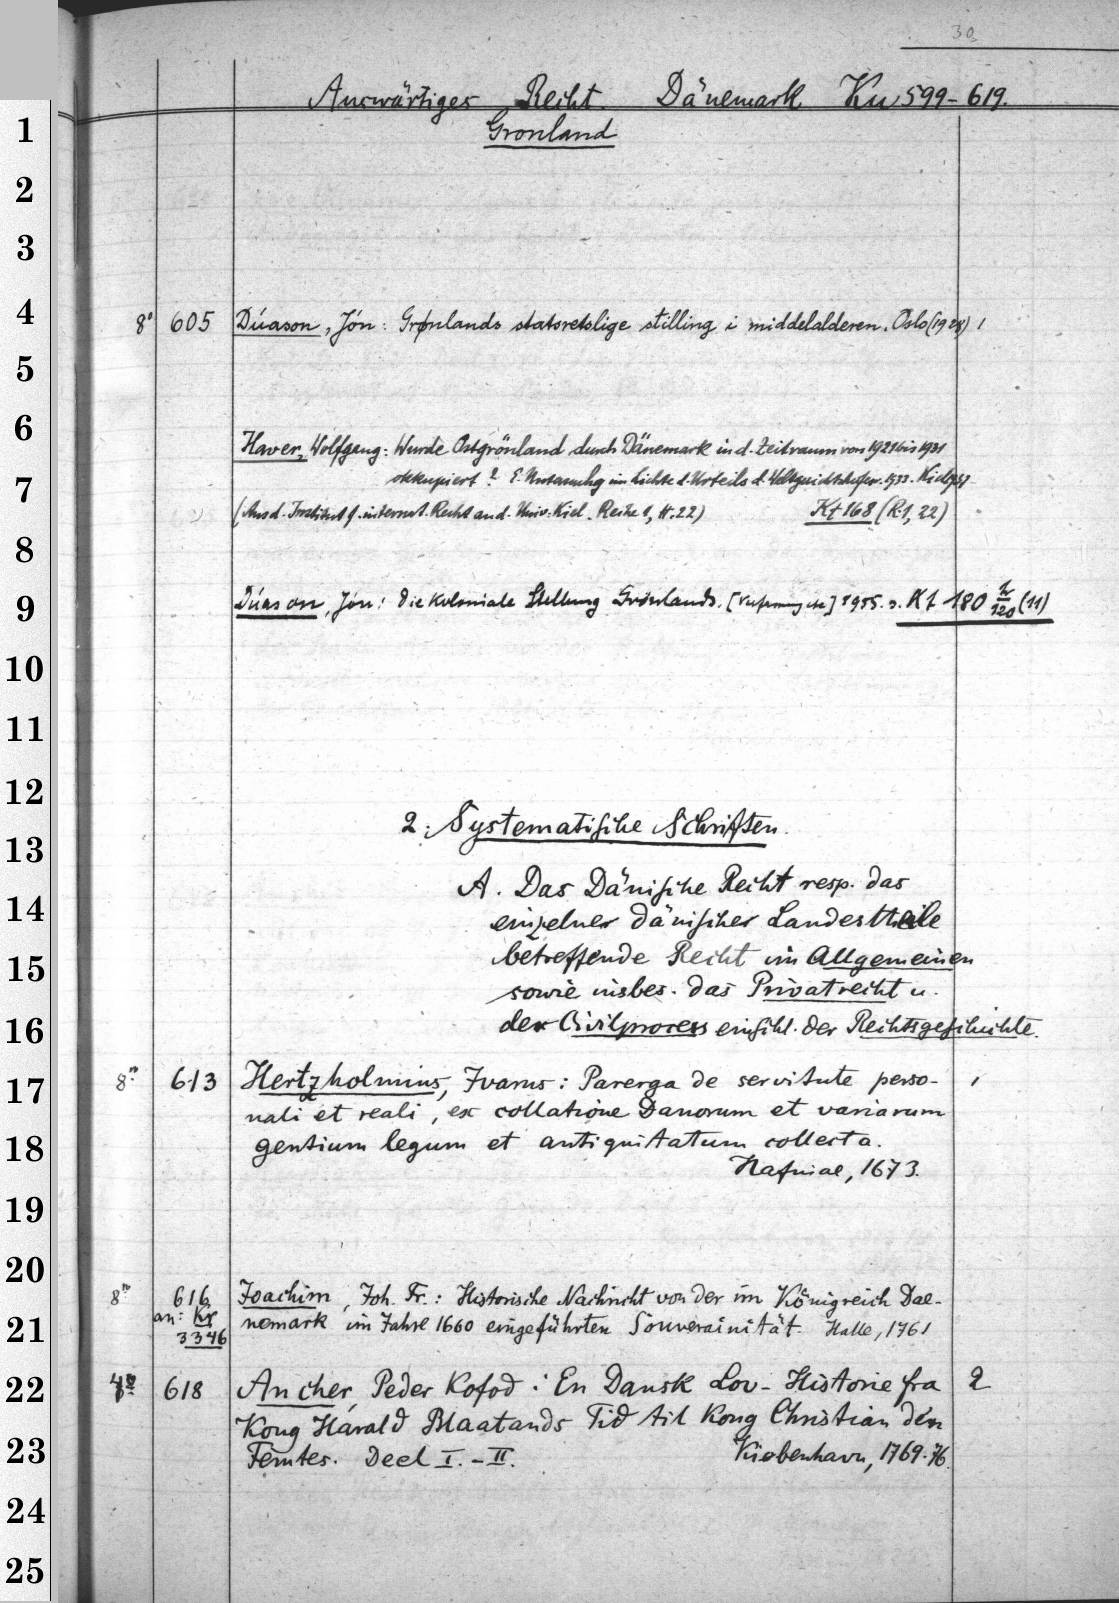 30
Auswärtiges Recht. Dänemark Ku 599-619.
Gronland
1
2
3
4
8° 605 Dúason, Jón: Grønlands statsretslige stilling i middelalderen. Oslo (1928) 1
5
6
Haver, Wolfgang: Wurde Ostgrönland durch Dänemark in d. Zeitraum von 1921 bis 1931
7
okkupiert? E. Untersuchg im Lichte d. Urteils d. Weltgerichtshofes v. 1933. Kiel
(Aus d. Institut f. internat. Recht an d. Univ. Kiel. Reihe 1, H. 22) Kt 168 (R. 1, 22)
8
9
Dúason, Jón: Die koloniale Stellung Grönlands. 1955. s. Kt 180 (11)
10
11
12
2. Systematische Schriften.
13
A. Das Dänische Recht resp. das
14
einzelner dänischer Landestheile
15
betreffende Recht im Allgemeinen
sowie insbes. das Privatrecht u.
16
der Civilprocess einschl. der Rechtsgeschichte.
17
8° 613 Hertzholmius, Ivarus: Parerga de servitute perso- 1
nali et reali, ex collatione Danorum et variarum
18
gentium legum et antiquitatum collecta.
Hafniae, 1673.
19
20
8° 616 Joachim, Joh. Fr.: Historische Nachricht von der im Königreich Dae-
an: Kr
21
3346 nemark im Jahre 1660 eingeführten Souverainität. Halle, 1761
22
618 Ancher, Peder Kofod: En Dansk Lov-Historie fra 2
Kong Harald Blaatands Tid til Kong Christian den
23
Femtes. Deel I.-II. Kiobenhavn, 1769-76.
24
25